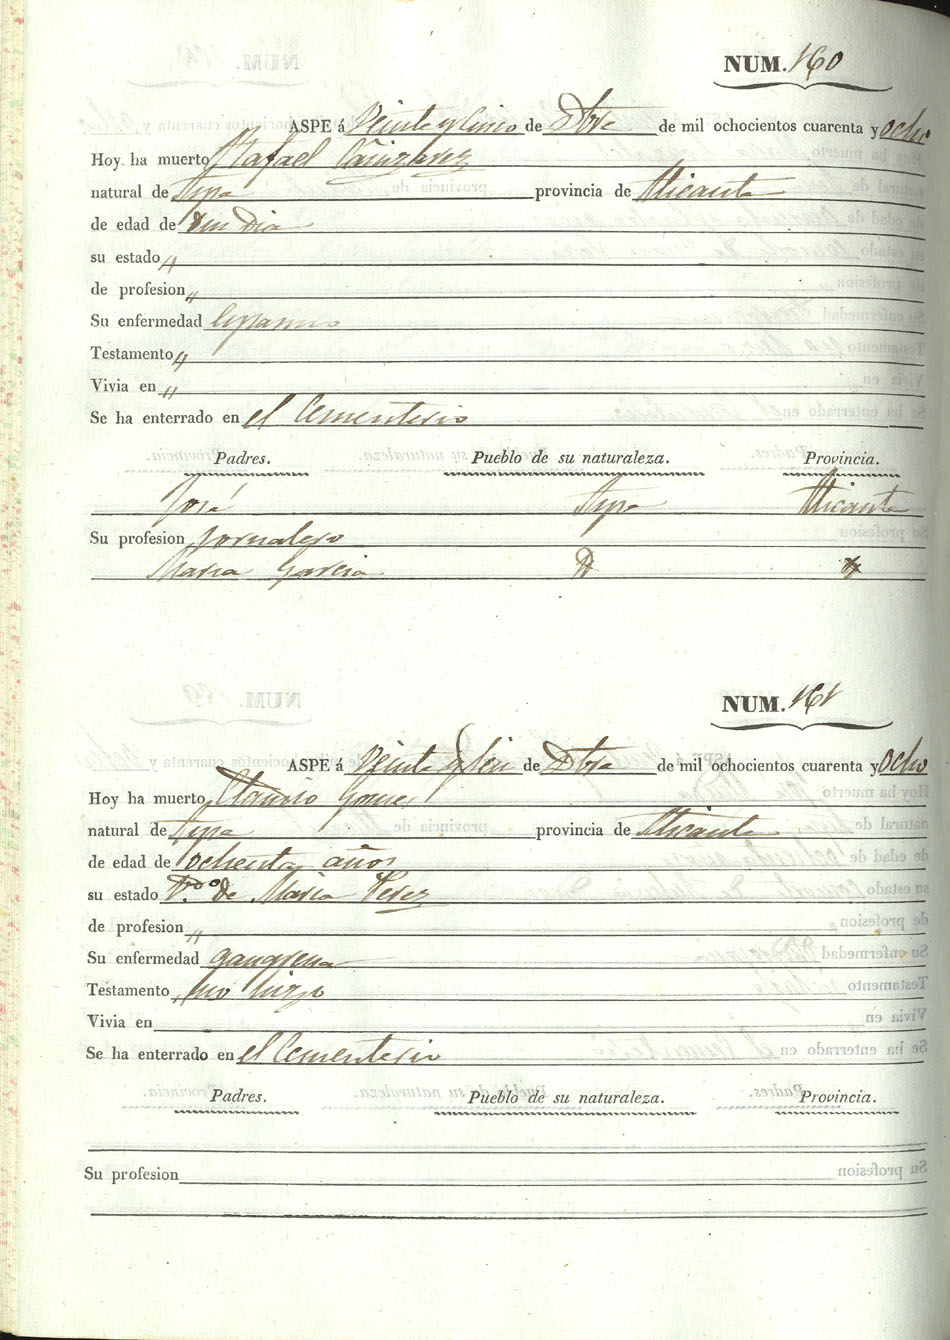 NUM. 160
ASPE á Veinte y cinco de Dbre de mil ochocientos cuarenta y ocho
Hoy ha muerto Rafael Cañizarez
natural de Aspe provincia de Alicante
de edad de un Dia
su estado "
de profesion "
Su enfermedad Espasmo
Testamento "
Vivia en "
Se ha enterrado en el Cementerio
Padres. Pueblo de su naturaleza. Provincia.
José Aspe Alicante
Su profesion Jornalero
Maria Garcia
NUM. 161
ASPE á Veinte y seis de Dbre de mil ochocientos cuarenta y ocho
Hoy ha muerto Gomes
natural de Aspe provincia de Alicante
de edad de ochenta años
su estado V.do de Maria Perez
de profesion "
Su enfermedad gangrena
Testamento no hizo
Vivia en
Se ha enterrado en el Cementerio
Padres. Pueblo de su naturaleza. Provincia.
Su profesion